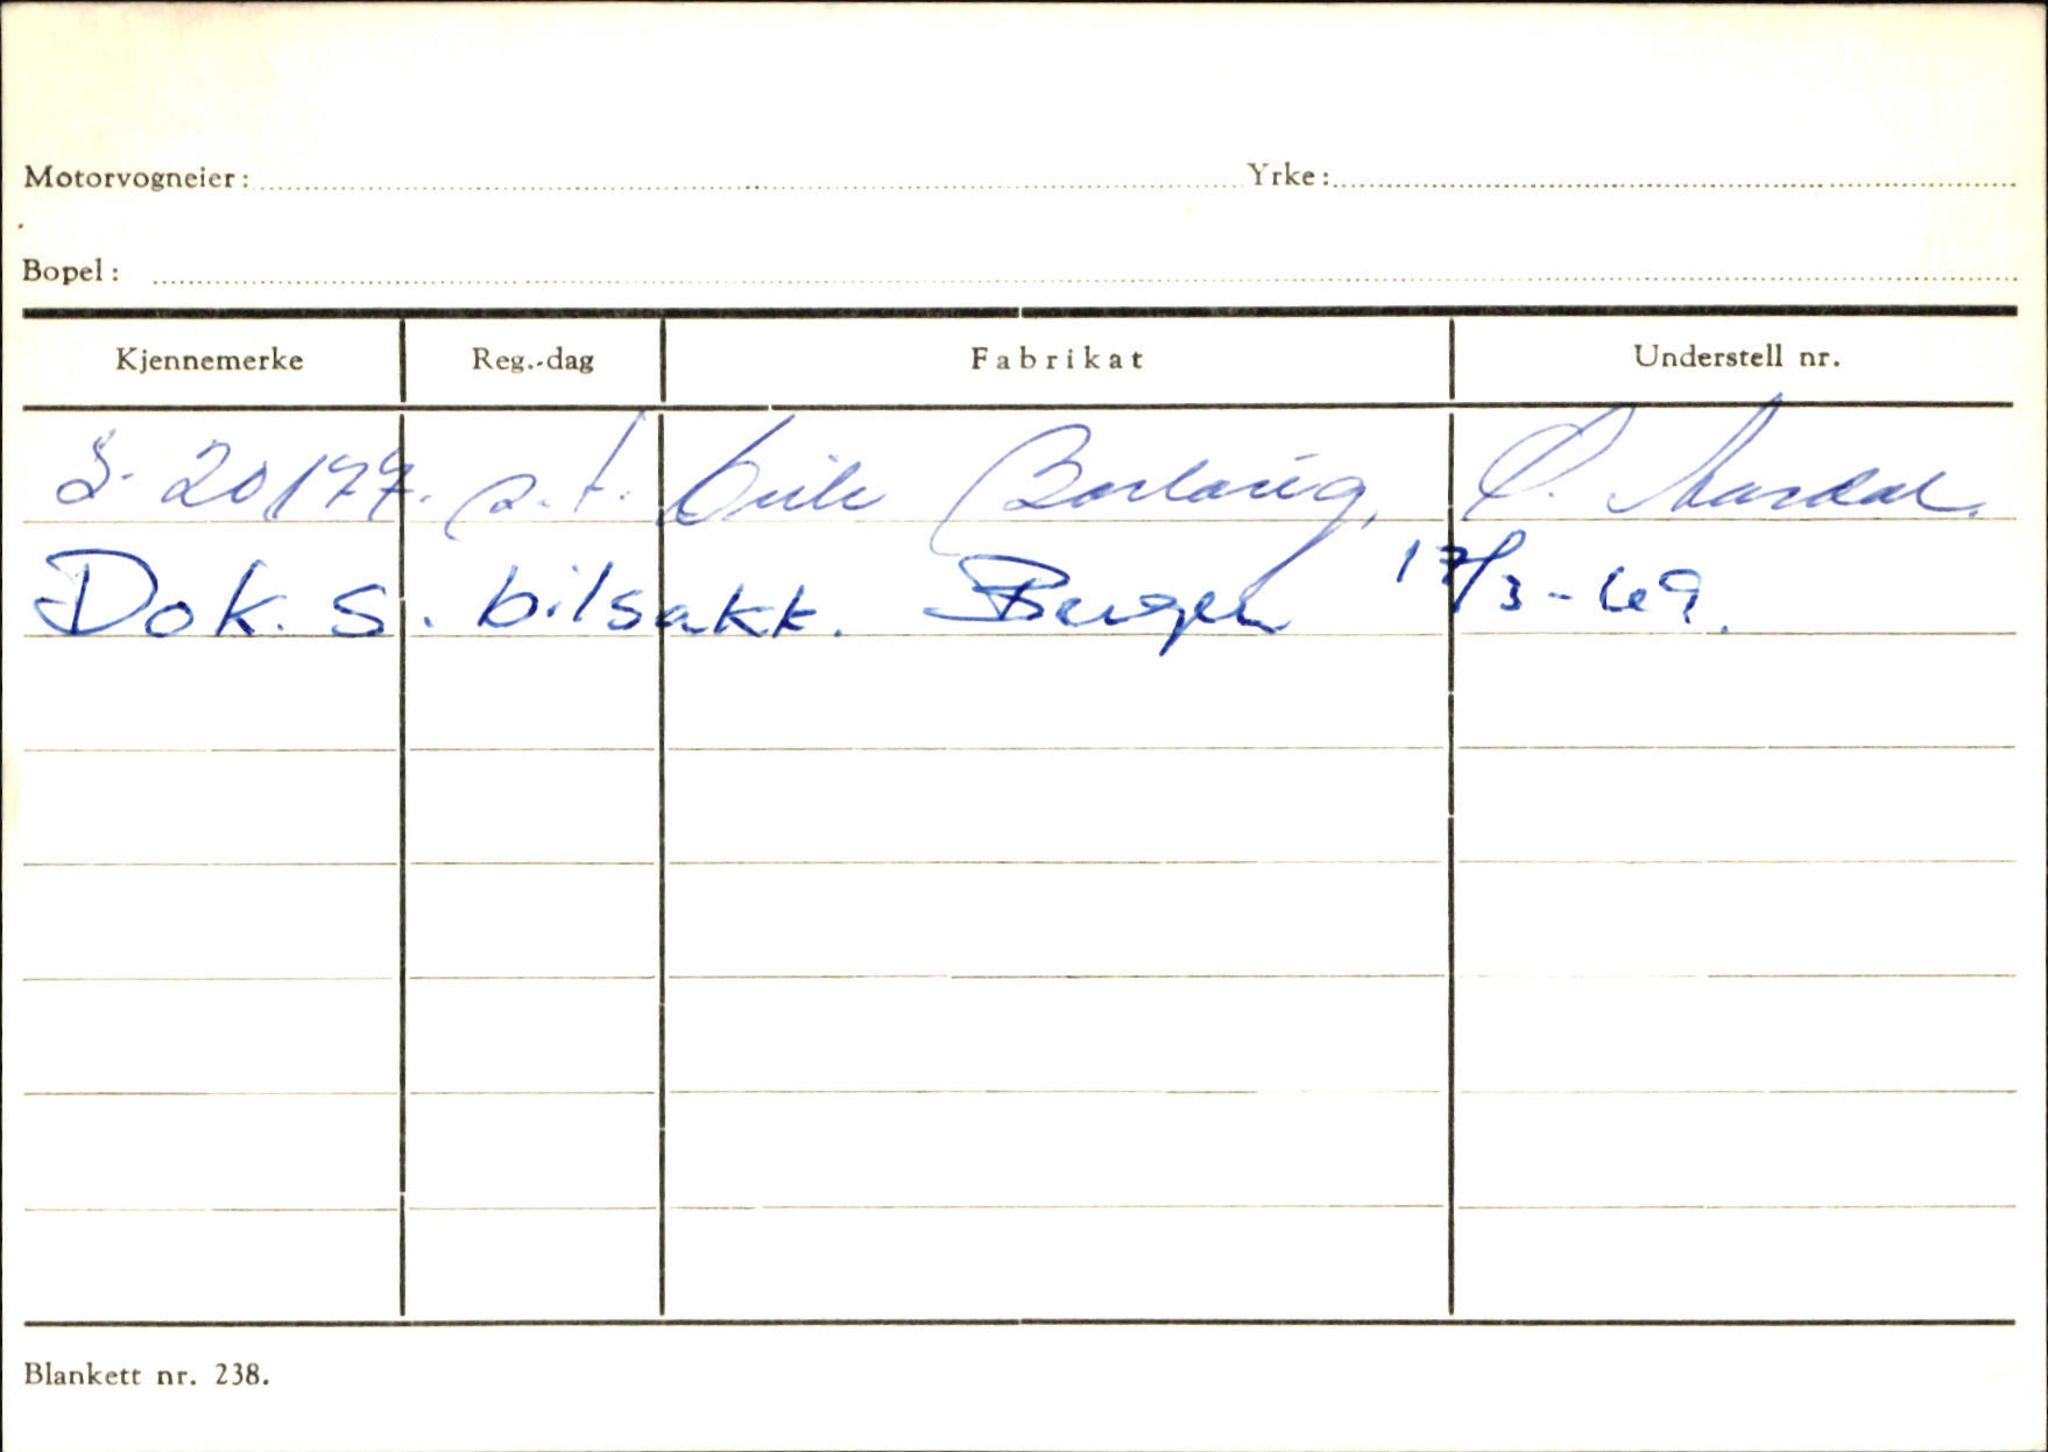 Motorvogneier: Yrke:
Bopel:
Kjennemerke Reg.-dag Fabrikat Understell nr.
S-20177. s.t. Borlaug, Ø. Aardal.
Dok. s. bilsakk. Bergen 17/3-69.
Blankett nr. 238.